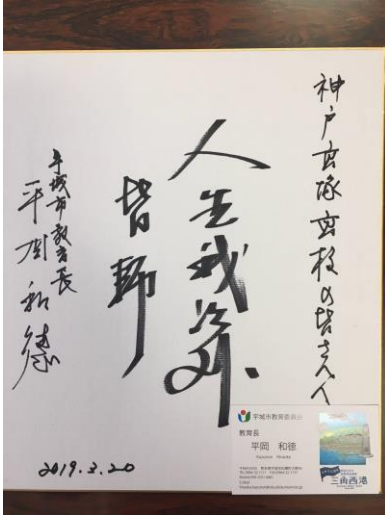 神戸高塚高校の皆さんへ
人生我以外
皆師
宇城市教育長
平岡和徳
2019.3.20
宇城市教育委員会
教育長
平岡 和徳
三角西港